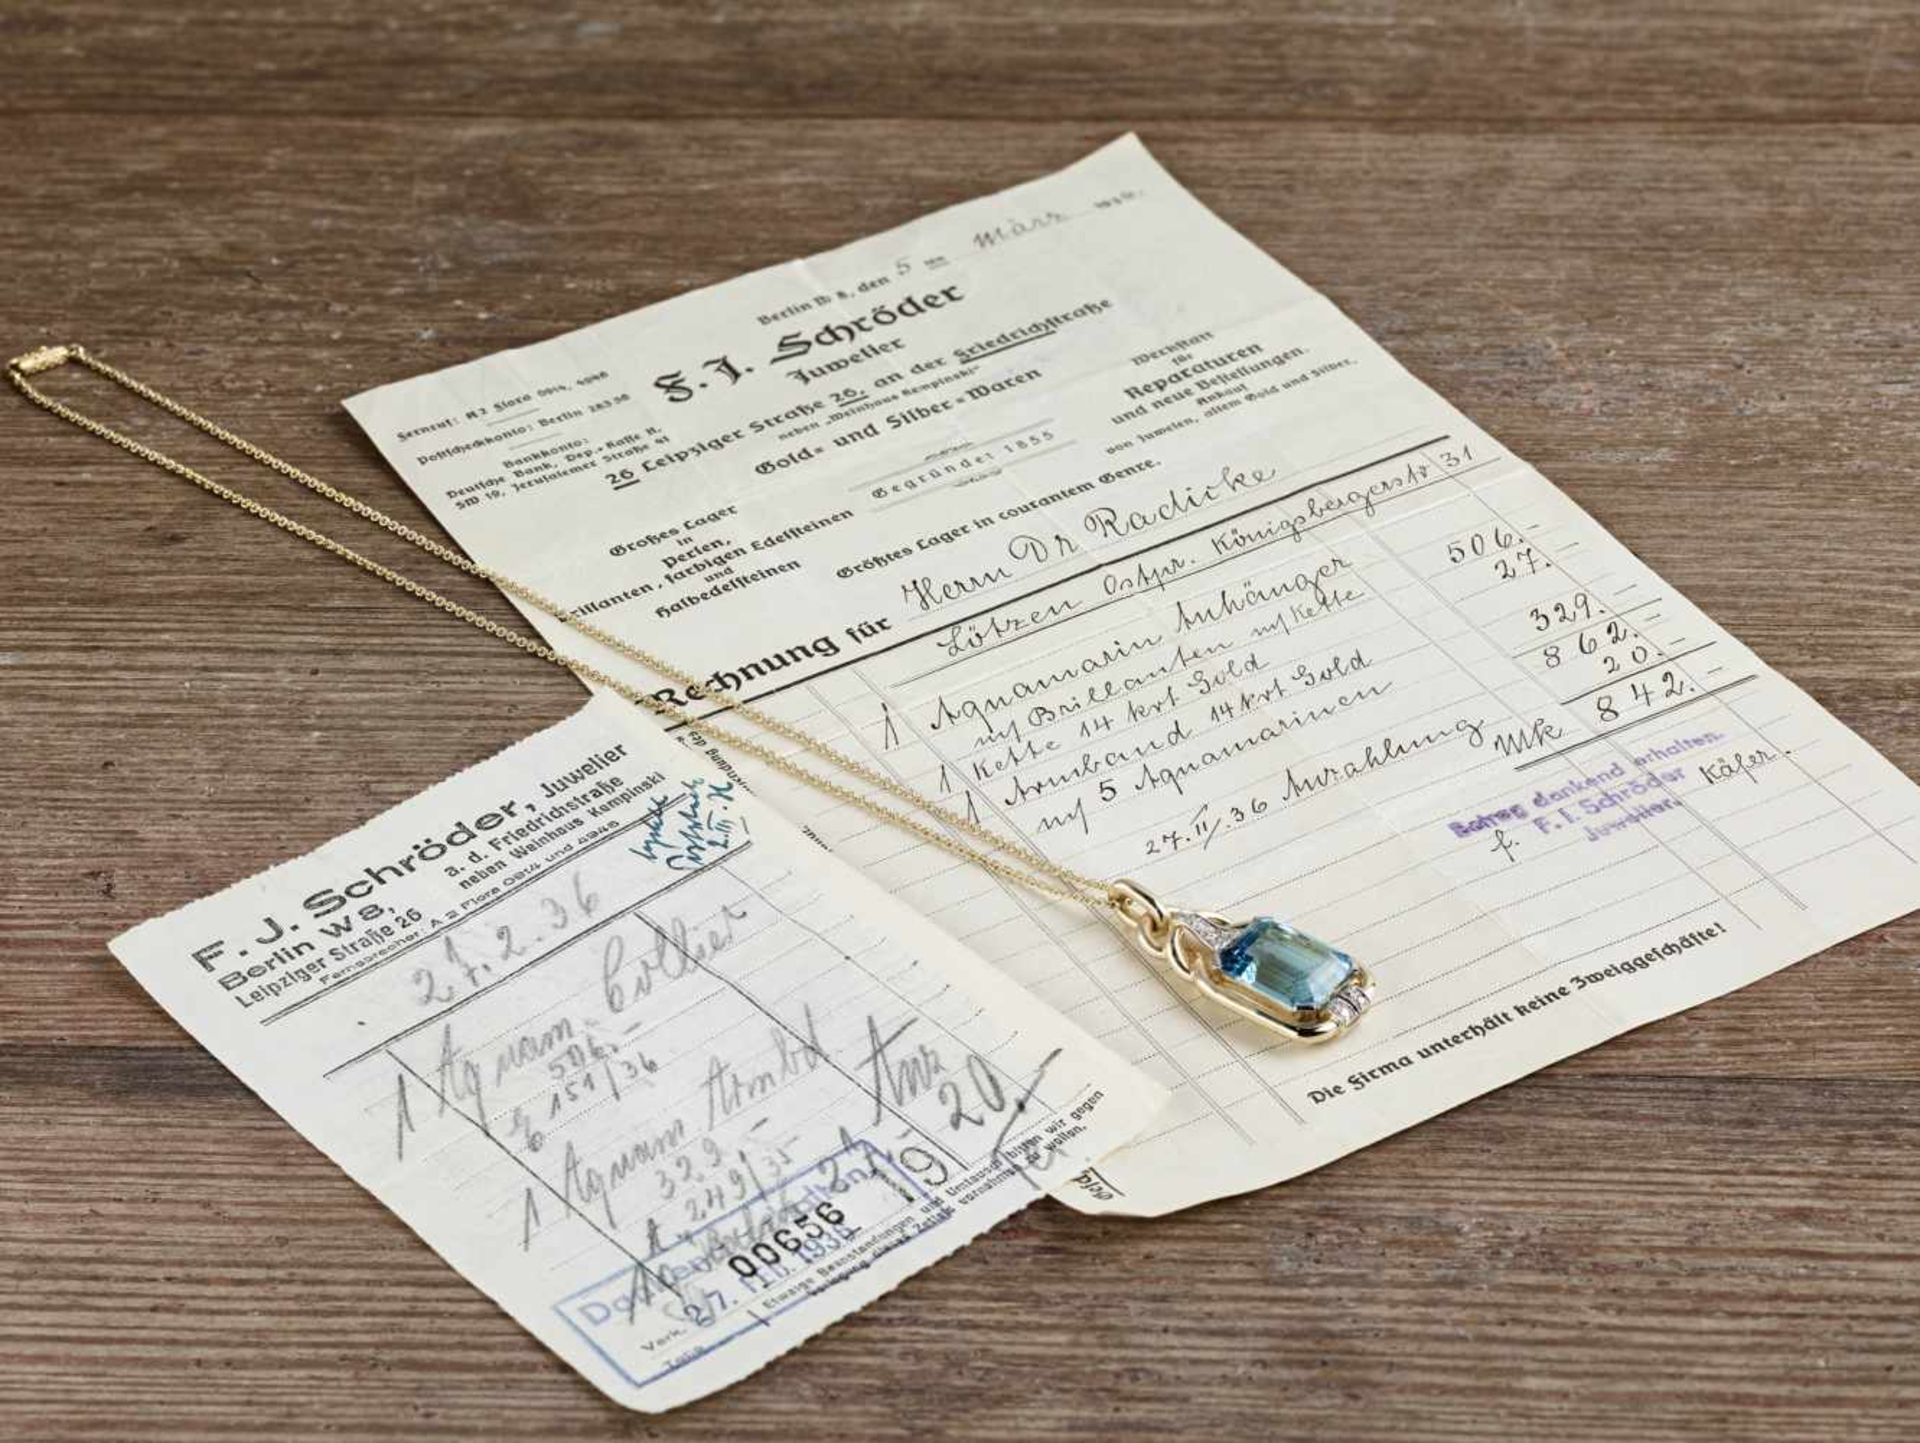 Berlin W 8, den 5 ten März 1936.
F. J. Schröder
Juwelier
26 Leipziger Straße 26, an der Friedrichstraße
neben „Weinhaus Kempinski“
Gold- und Silber-Waren
Gegründet 1855
Fernruf: A 2 Flora 0914, 4946
Postscheckkonto: Berlin
Bankkonto:
Deutsche Bank, Dep.-Kasse H,
SW 19, Jerusalemer Straße 41
Großes Lager
in
Perlen,
rillanten, farbigen Edelsteinen
und
Halbedelsteinen
Werkstatt
für
Reparaturen
und neue Bestellungen.
Ankauf
von Juwelen, altem Gold und Silber.
Größtes Lager in courantem Genre.
Rechnung für Herrn Dr Radicke
Lötzen Ostpr. Königsbergerstr 31
1 Aquamarin Anhänger
mf Brillanten mf Kette 506.-
1 Kette 14 krt Gold 27.-
1 Armband 14 krt Gold
mf 5 Aquamarinen 329.-
862.-
27.II.36 Anzahlung 20.-
Mk 842.-
Betrag dankend erhalten.
F. J. Schröder
Juwelier.
f. Käfer.
Die Firma unterhält keine Zweiggeschäfte!
F. J. Schröder, Juwelier
Berlin W 8, a. d. Friedrichstraße
Leipziger Straße 26 neben Weinhaus Kempinski
Fernsprecher: A 2 Flora 0914 und 4946
27.2.36
1 Aquam. Collier
506.-
151/36
1 Aquam Armbd
329.-
249/35
Anz
20.-
00656
27. Feb. 1936
19
Verk.
Etwaige Beanstandungen und Umtausch bitten wir gegen
Vorlegung dieses Zettels vornehmen zu wollen.